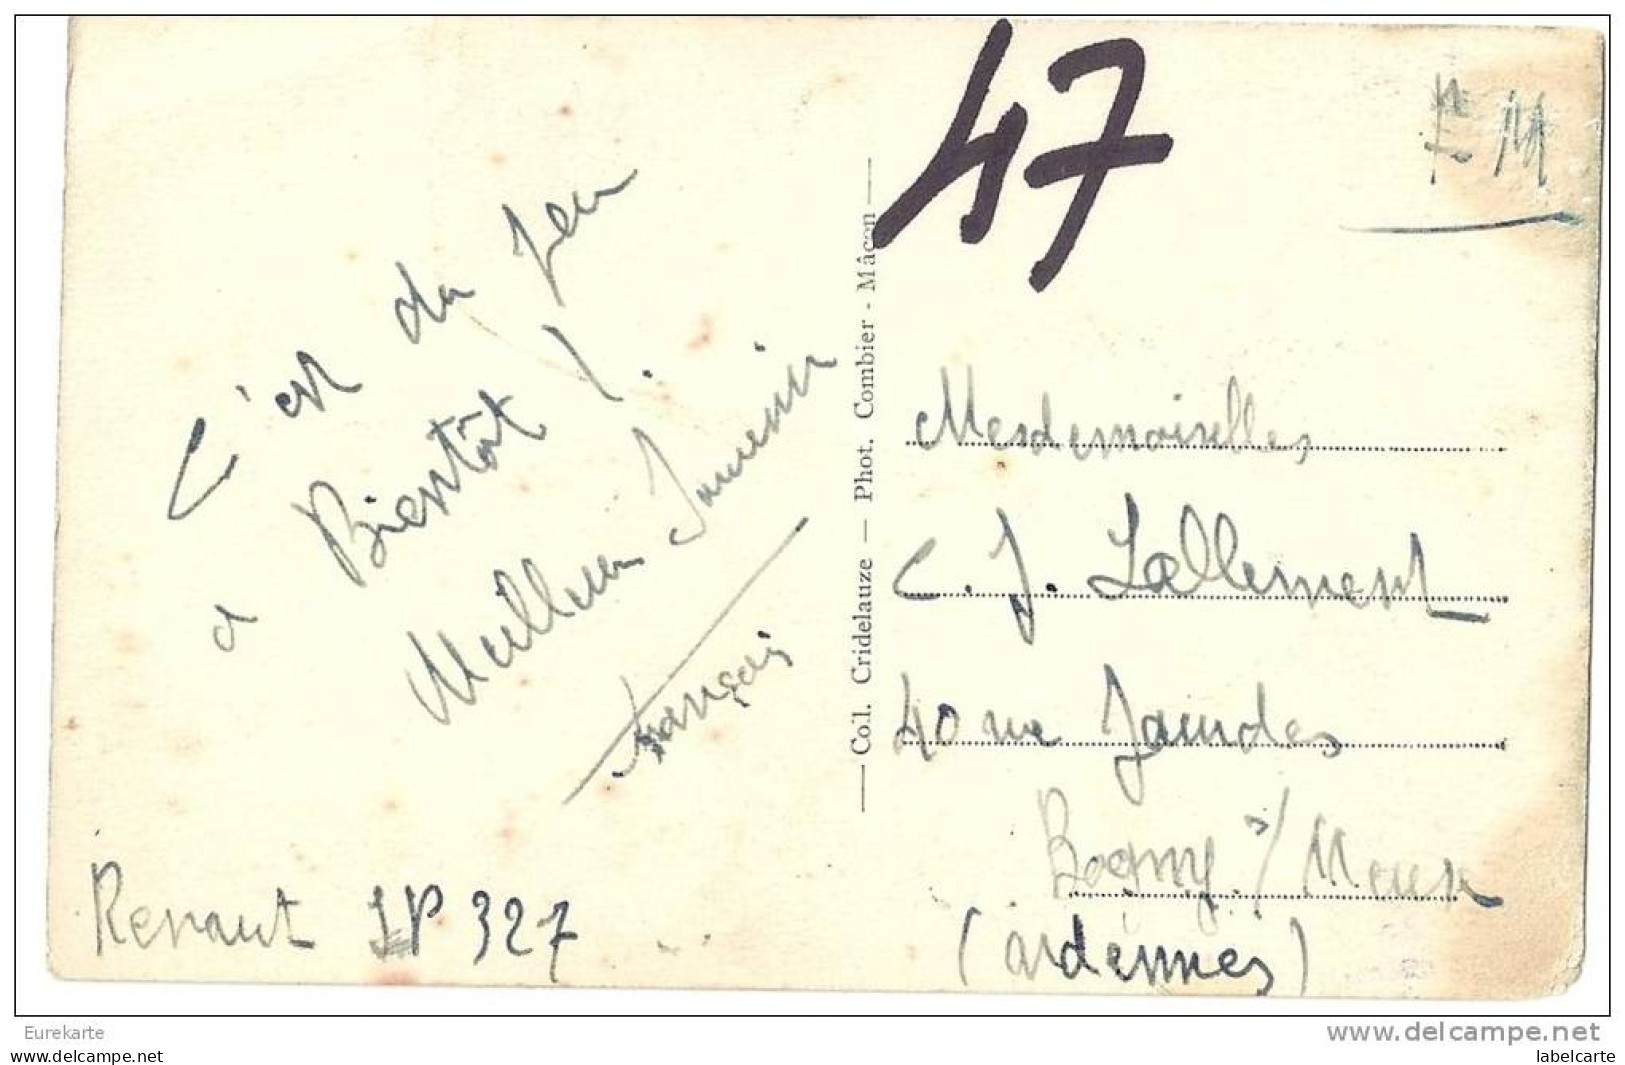 C'est du feu
a Bientôt !
Meilleur Souvenir
François
Renaut SP 327
Col. Cridelauze — Phot. Combier - Mâcon
47
F. M
Mesdemoiselles
C. J. Lallement
40 rue Jaurdes
Bogny s/ Meuse
(ardennes)
Eurekarte
www.delcampe.net
labelcarte